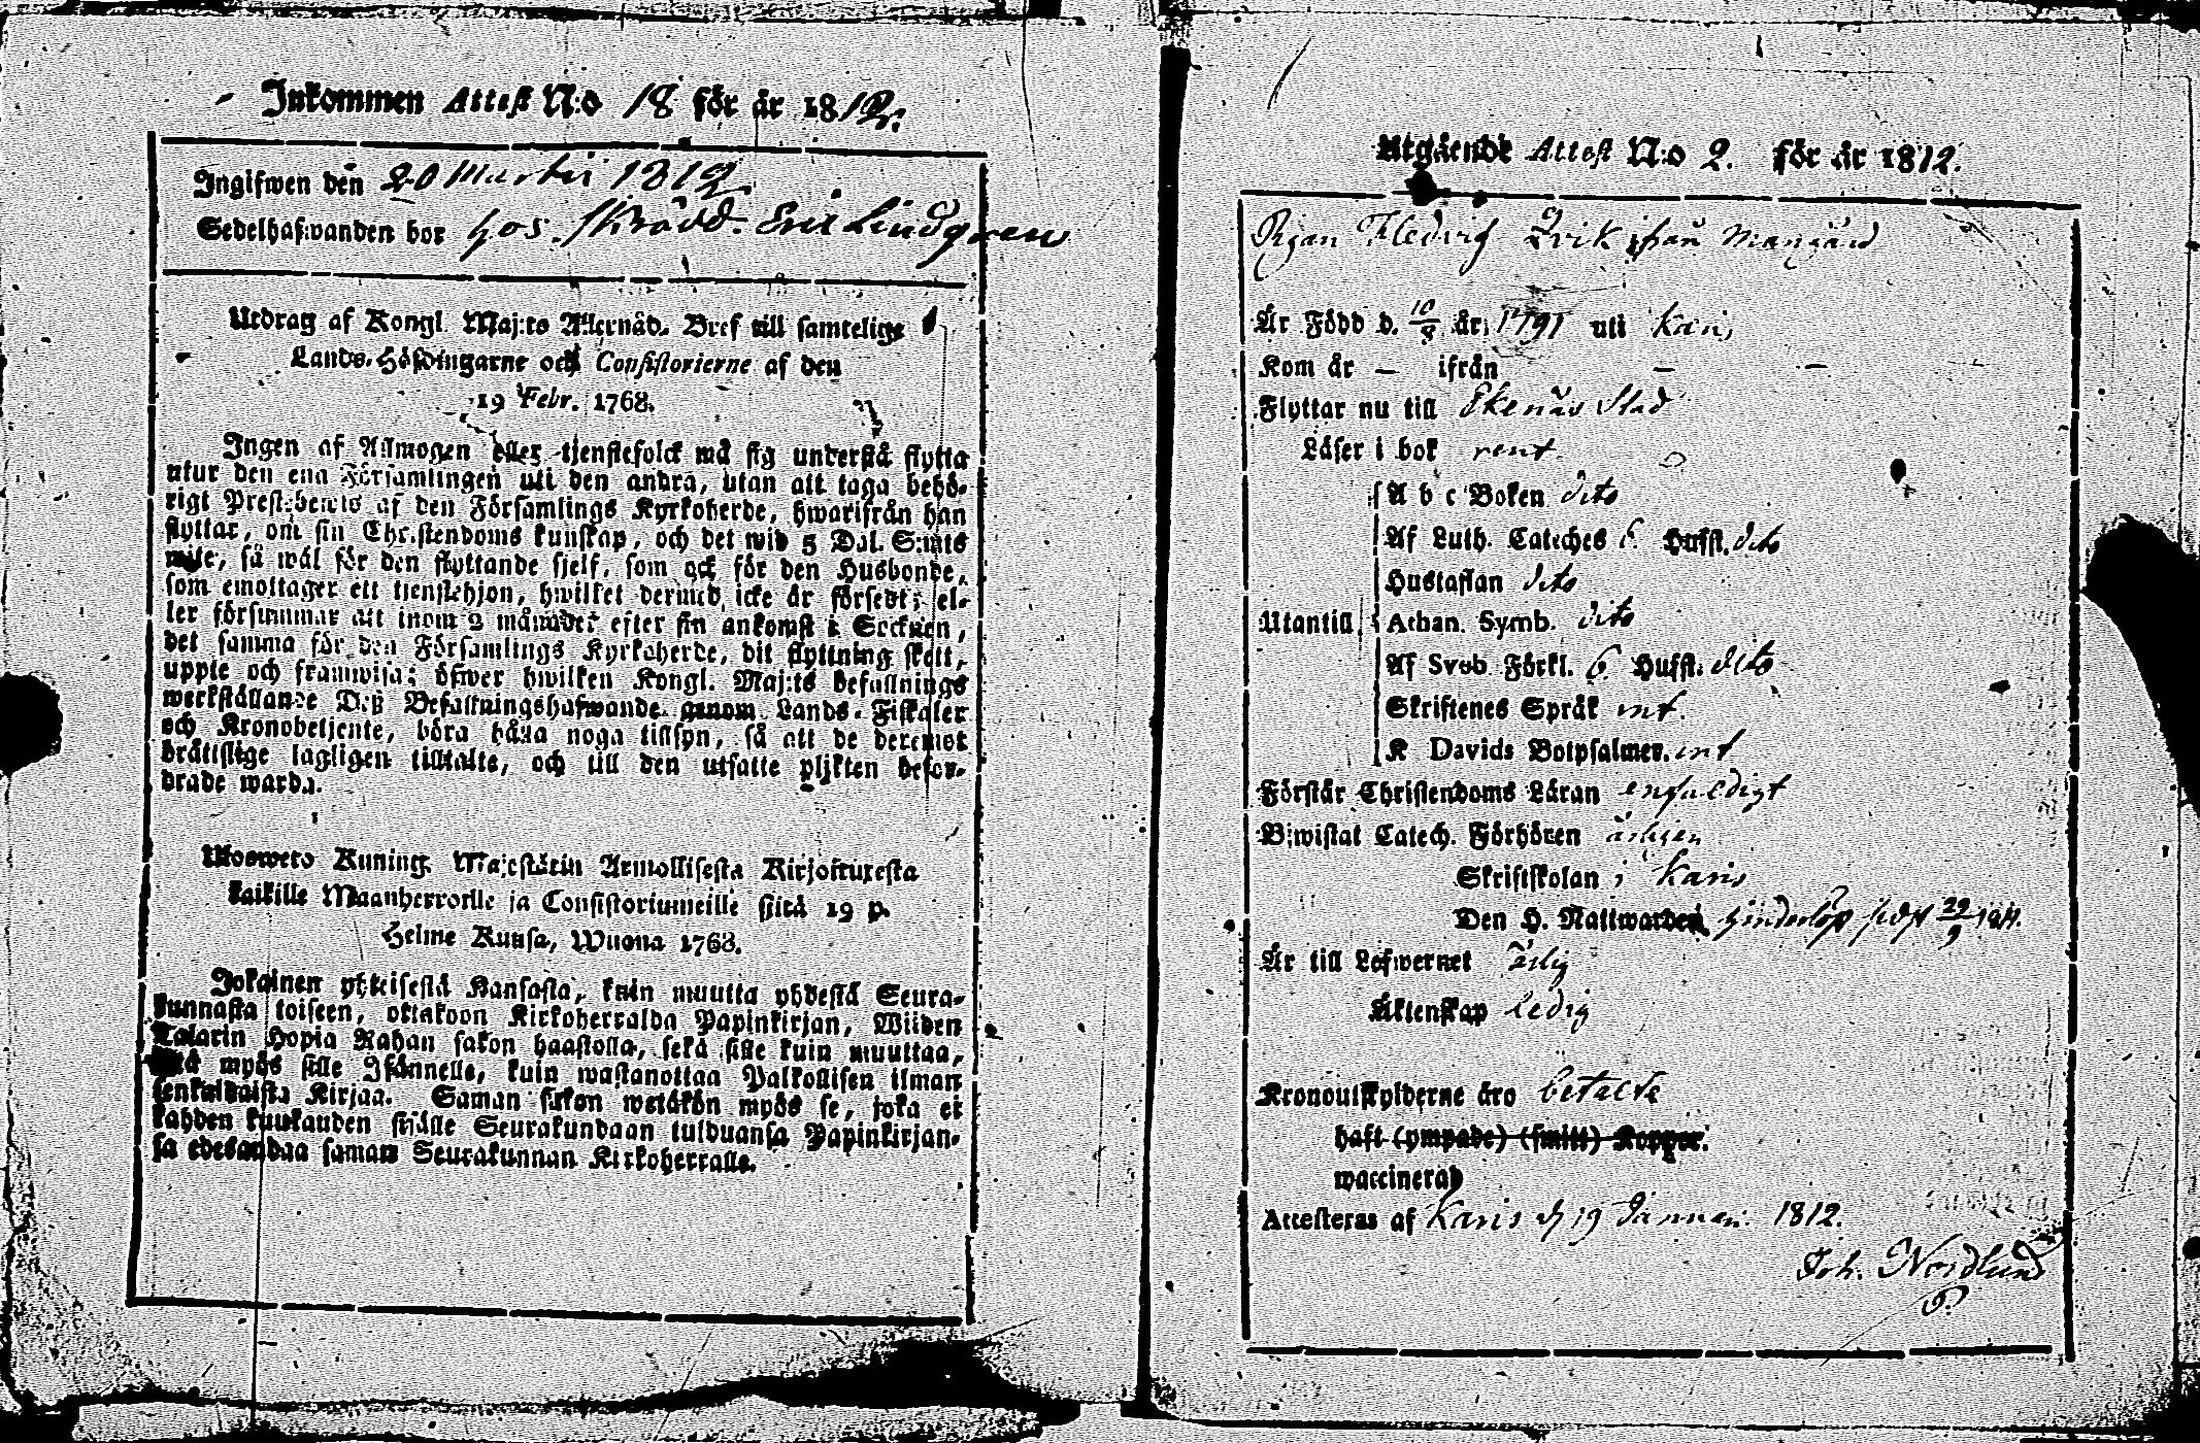 Inkommen Attest N:o 18 för år 1812.
Ingifwen den 20 Martii 1812
Sedelhafwanden bor hos Skrädd. Eric Lindgren
Utdrag af Kongl. Maj:ts Allernåd. Bref till samtelige
Lands-Höfdingarne och Consistorierne af den
19 Febr. 1768.
Ingen af Allmogen eller tjenstefolck må sig understå flytta
utur den ena Församlingen uti den andra, utan att taga behö-
rigt Prestbewis af den Församlings Kyrkoherde, hwarifrån han
flyttar, om sin Christendoms kunskap, och det wid 5 Dal. S:mts
wite, så wäl för den flyttande sjelf, som ock för den Husbonde,
som emottager ett tjenstehjon, hwilket dermed icke är försedt; el-
ler försummar att inom 2 månader efter sin ankomst i Socknen,
det samma för den Församlings Kyrkoherde, dit flyttning skett,
uppte och framwisa; öfwer hwilken Kongl. Maj:ts befallnings
werkställande Deß Befallningshafwande genom Lands-Fiskaler
och Kronobetjente, böra hålla noga tillsyn, så att de deremot
brätslige lagligen tilltalte, och till den utsatte plikten befor-
drade warda.
Ulosweto Kuning. Majestätin Armollisesta Kirjoituxesta
kaikille Maanherroille ja Consistoriumeille siitä 19 p.
Helme Kuusa, Wuona 1768.
Jokainen yhteisestä Kansasta, kuin muutta yhdestä Seura-
kunnasta toiseen, ottakoon Kirkoherralda Papinkirjan, Wiiden
Talarin Hopia Rahan sakon haastolla, sekä sille kuin muuttaa,
että myös sille Isännelle, kuin wastanottaa Palkollisen ilman
senkaldaista Kirjaa. Saman sakon wetäkön myös se, joka ei
kahden kuukauden sisälle Seurakundaan tulduansa Papinkirjan-
sa edesandaa saman Seurakunnan Kirkoherralle.
Utgående Attest N:o 2. för år 1812.
Pigan Hedvig ifrån Mangård
Är Född d. 10/8 år 1791 uti Karis
Kom år — ifrån —
Flyttar nu till Ekenäs Stad
Läser i bok rent
A b c Boken dito
Af Luth. Cateches 6 Hufst. dito
Hustaflan dito
Utantill Athan. Symb. dito
Af Sveb. Förkl. 6 Hufst. dito
Skriftenes Språk int.
K. Davids Botpsalmer. int
Förstår Christendoms Läran enfaldigt
Biwistat Catech. Förhören årligen
Skriftskolan i Karis
Den H. Nattwarden hinderlös sidst 29/9 1811.
Är till Lefwernet ärlig
Äktenskap ledig
Kronoutskylderne äro betalte
haft (ympade) (smitt) Koppor.
waccinerad
Attesteras af Karis d 19 Januari 1812.
Joh. Nordlund
P.